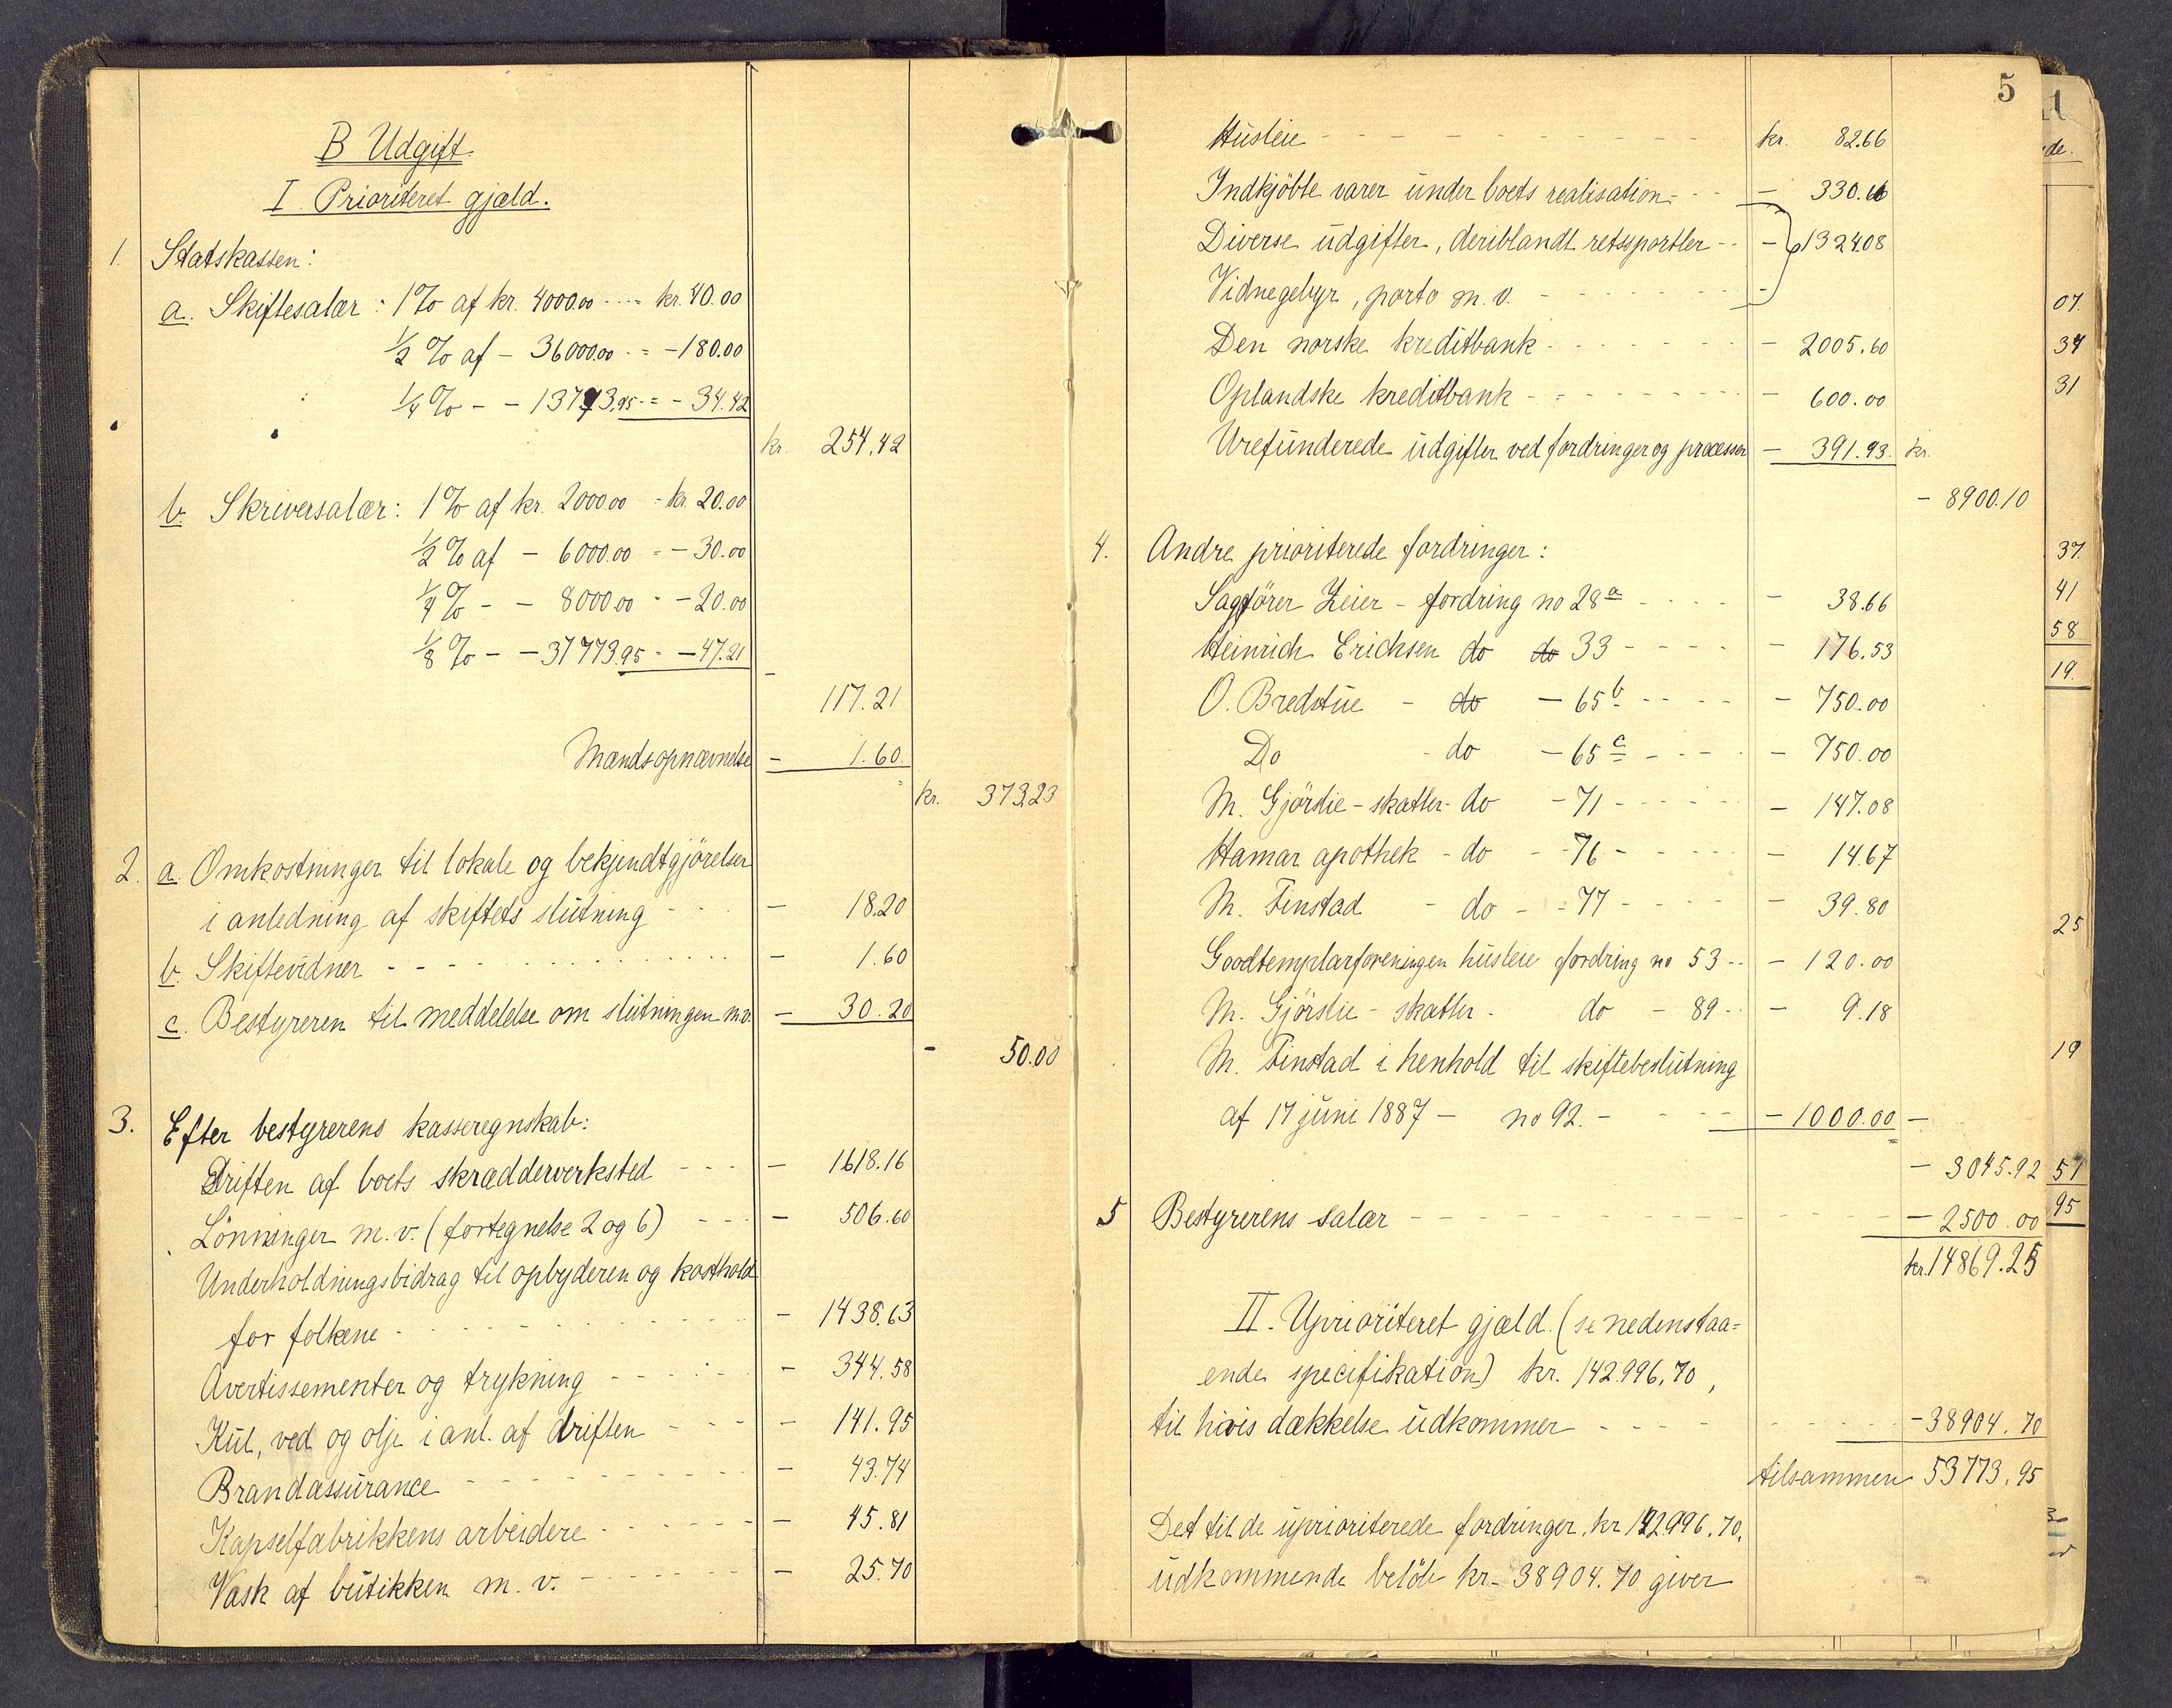 B Udgift.
I Prioriteret gjæld.
1. Statskassen:
a. Skiftesalær: 1% af kr. 4000.00 = kr. 40.00
1/2 % af - 36000.00 = - 180.00
1/4 % - - 13773.95 = - 34.42
kr. 254.42
b. Skriversalær: 1% af kr. 2000.00 = kr. 20.00
1/2 % af - 6000.00 = - 30.00
1/4 % - - 8000.00 = - 20.00
1/8 % - - 37773.95 = - 47.21
- 117.21
Mandsopnævnelse - 1.60.
kr. 373.23
2. a. Omkostninger til lokale og bekjendtgjörelser
i anledning af skiftets slutning - 18.20
b. Skiftevidner - 1.60
c. Bestyreren til meddelelse om slutningen m.v. - 30.20
- 50.00
3. Efter bestyrerens kasseregnskab:
Driften af boets skrædderverksted - 1618.16
Lönninger m. v. (fortegnelse 2 og 6) - 506.60
Underholdningsbidrag til opbyderen og kosthold
for folkene - 1438.63
Avertissementer og trykning - 344.58
Kul, ved og olje i anl. af driften - 141.95
Brandassurance - 43.74
Kapselfabrikkens arbeidere - 45.81
Vask af butikken m. v. - 25.70
5
Husleie kr. 82.66
Indkjöbte varer under boets realisation - 330.66
Diverse udgifter, deriblandt retssportler - 1324.08
Vidnegebyr, porto m. v. -
Den norske kreditbank - 2005.60
Oplandske kreditbank - 600.00
Urefunderede udgifter ved fordringer og processer - 391.93. kr.
- 8900.10
4. Andre prioriterede fordringer:
Sagförer Zeier - fordring no 28 a - 38.66
Heinrich Erichsen do do 33 - 176.53
O. Bredstue - do - 65 b - 750.00
Do - do - 65 c - 750.00
M. Gjörslie - skatter - do - 71 - 147.08
Hamar apothek - do - 76 - 14.67
M. Finstad - do - 77 - 39.80
Goodtemplarforeningen husleie fordring no 53 - 120.00
M. Gjörslie - skatter - do - 89 - 9.18
M. Finstad i henhold til skiftebeslutning
af 17 juni 1887 - no 92. - 1000.00 -
- 3045.92
5 Bestyrerens salær - 2500.00
kr. 14869.25
II. Uprioriteret gjæld. (se nedenstaa=
ende specifikation) kr. 142.996,70,
til hvis dækkelse udkommer - 38904.70
tilsammen 53773.95
Det til de uprioriterede fordringer, kr 142996.70,
udkommende belöb kr. 38904.70 giver
1
de.
07.
34
31
37.
41
58
19.
25
19
51
95